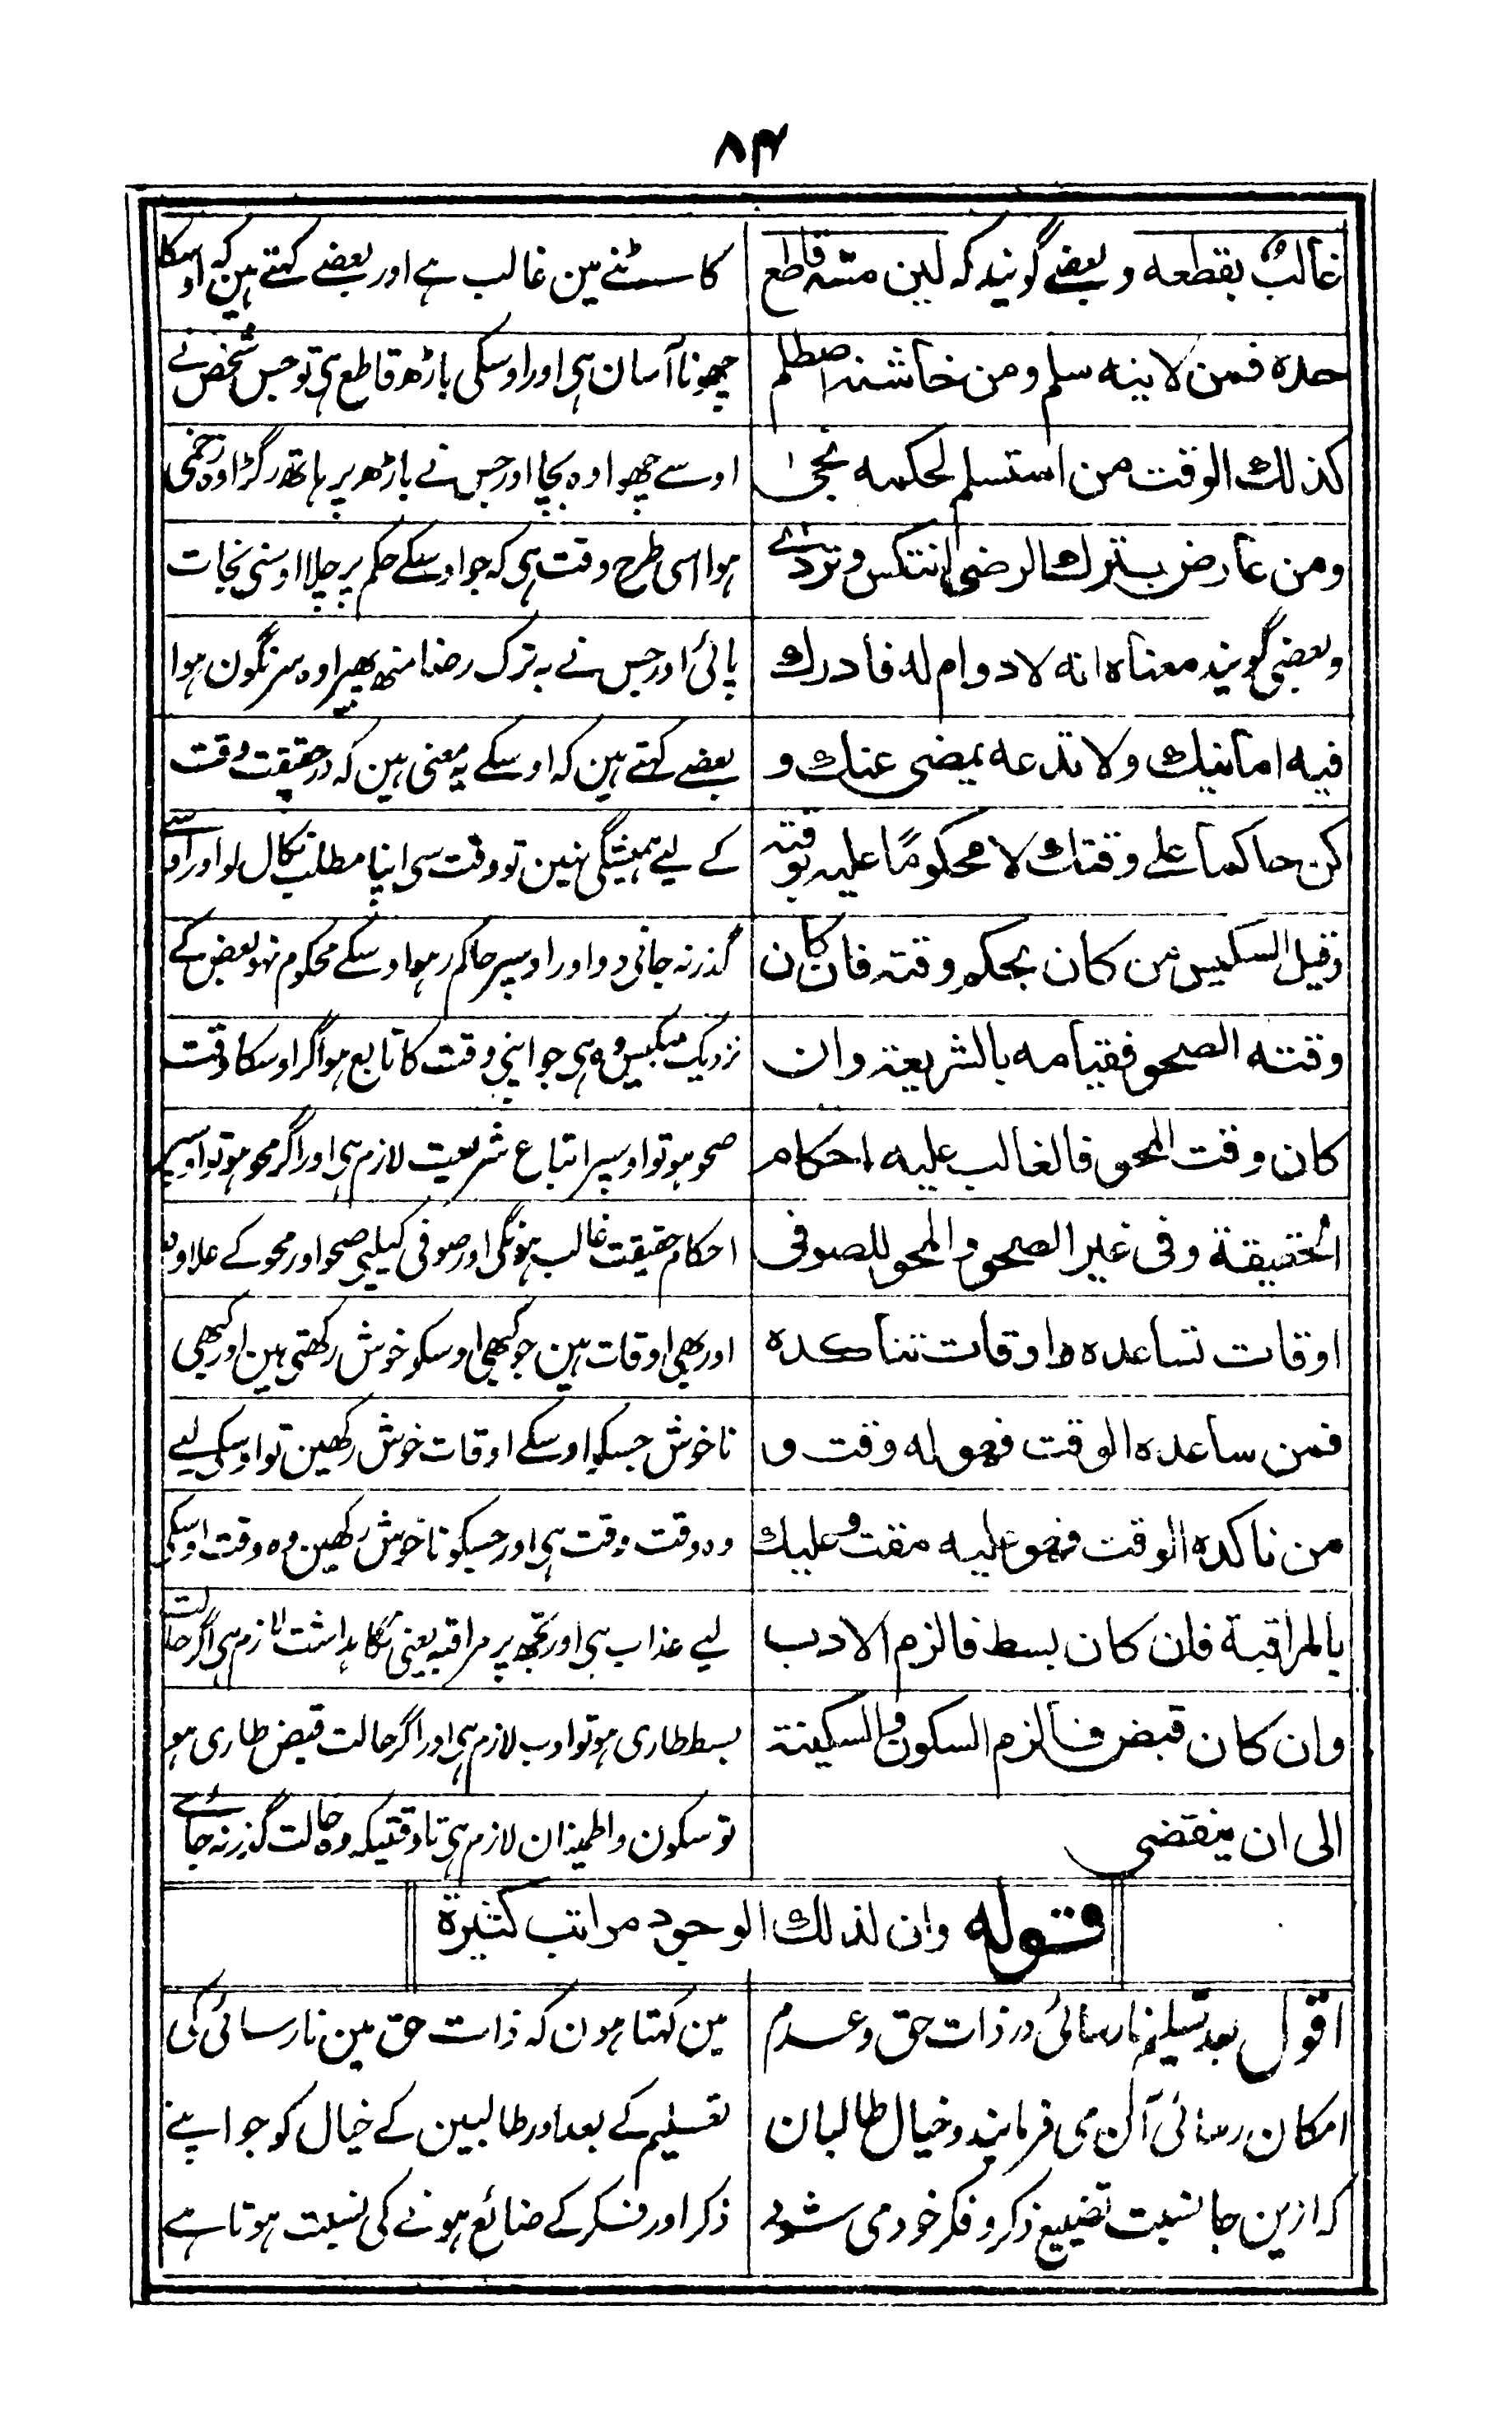 ۸۳
غالبٌ بقطعه و بعضے گویند کہ لین مسّہ قاطع
حدہ فمن لاینہ سلم و من خاشنہ اصطلم
کذلک الوقت من استسلم لحکمہ نجیٰ
و من عارض بترک الرضی انتکس و تردے
و بعضی گویند معناہ انہ لا دوام لہ فادرک
فیہ امانیک ولا تدعہ یمضی عنک و
کن حاکماً علے وقتک لا محکومًا علیہ بوقتہ
وقیل الکیس من کان بحکم وقتہ فان کان
وقتہ الصحو فقیامہ بالشریعۃ وان
کان وقت المحو فالغالب علیہ احکام
الحقیقة وفی غیر الصحو والمحو للصوفی
اوقات تساعدہ و اوقات تناکدہ
فمن ساعدہ الوقت فھو لہ وقت و
من ناکدہ الوقت فھو علیہ مقت و علیک
بالمراقبة فان کان بسط فالزم الادب
وان کان قبض فالزم السکون والسکینۃ
الی ان ینقضی
کاٹنے مین غالب ہے اور بعضے کہتے ہین کہ اوسکا
چھونا آسان ہی اور اوسکی باڑھ قاطع ہی تو جس شخص نے
اوسے چھوا وہ بچا اور جس نے باڑھ پر ہاتھ رگڑا وہ زخمی
ہوا اسی طرح وقت ہی کہ جو اوسکے حکم پر چلا اوسنی نجات
پائی اور جس نے بہ ترک رضا منھ پھیرا وہ سرنگون ہوا
بعضے کہتے ہین کہ اوسکے یہ معنی ہین کہ در حقیقت وقت
کے لیے ہمیشگی نہین تو وقت سی اپنا مطلب نکال لو اور اوسے
گذر نہ جانی دو اور اوسپر حاکم رہو اوسکے محکوم نہو بعض کے
نزدیک کیس وہ ہی جو اپنی وقت کا تابع ہو اگر اوسکا وقت
صحو ہو تو اوسپر اتباع شریعت لازم ہی اور اگر محو ہو تو اوسپر
احکام حقیقت غالب ہونگی اور صوفی کیلیی صحو اور محو کے علاوہ
اور بھی اوقات ہین جو کبھی اوسکو خوش رکھتی ہین اور کبھی
ناخوش جسکو اوسکے اوقات خوش رکھین تو اوسکی لیے
وہ وقت وقت ہی اور جسکو ناخوش رکھین وہ وقت اوسکی
لیے عذاب ہی اور تجھ پر مراقبہ یعنی نگاہداشت لازم ہی اگر حالت
بسط طاری ہو تو ادب لازم ہی اور اگر حالت قبض طاری ہو
تو سکون و اطمینان لازم ہی تا وقتیکہ وہ حالت گذر نہ جائے
قولہ وان لذلک الوجود مراتب کثیرة
اقول بعد تسلیم نارسائی در ذات حق و عدم
امکان رسائی آن می فرمایند و خیال طالبان
کہ ازین جا نسبت تضییع ذکر و فکر خود می شود
مین کہتا ہون کہ ذات حق مین نارسائی کی
تسلیم کے بعد اور طالبین کے خیال کو جو اپنے
ذکر اور فکر کے ضائع ہونے کی نسبت ہوتا ہے